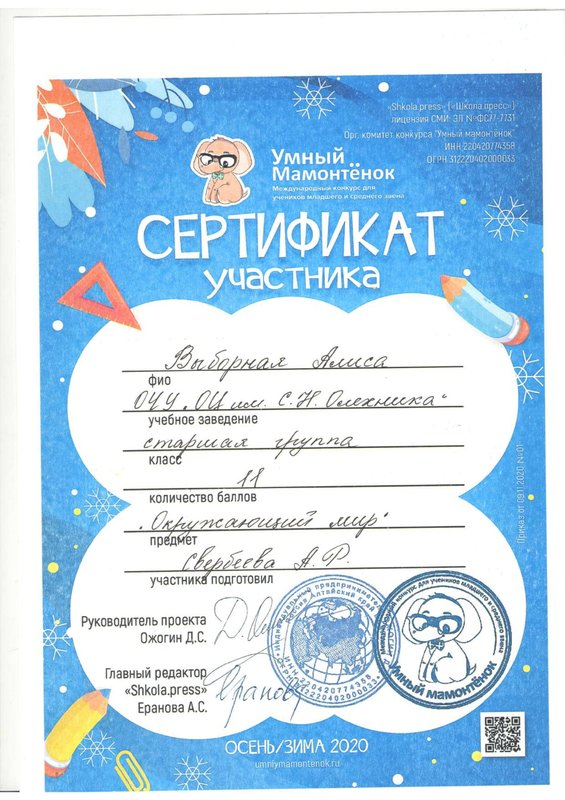 «Shkola.press» («Школа.пресс»)
лицензия СМИ: ЭЛ №ФС77-7731
Орг. комитет конкурса "Умный мамонтёнок"
ИНН 220420774358
ОГРН 312220402000033
Умный
Мамонтёнок
Международный конкурс для
учеников младшего и среднего звена
СЕРТИФИКАТ
участника
Выборная Алиса
фио
ОЧУ "ОЦ им. С.Н. Олехника"
учебное заведение
старшая группа
класс
11
количество баллов
"Окружающий мир"
предмет
Свербеева А.Р.
участника подготовил
Руководитель проекта
Ожогин Д.С.
Главный редактор
«Shkola.press»
Еранова А.С.
Приказ от 09.11.2020 №-01
Индивидуальный предприниматель
Россия Алтайский край
ИНН 220420774358
ОГРН 312220402000033
Международный конкурс для учеников младшего и среднего звена
Умный мамонтёнок
ОСЕНЬ/ЗИМА 2020
umniymamontenok.ru